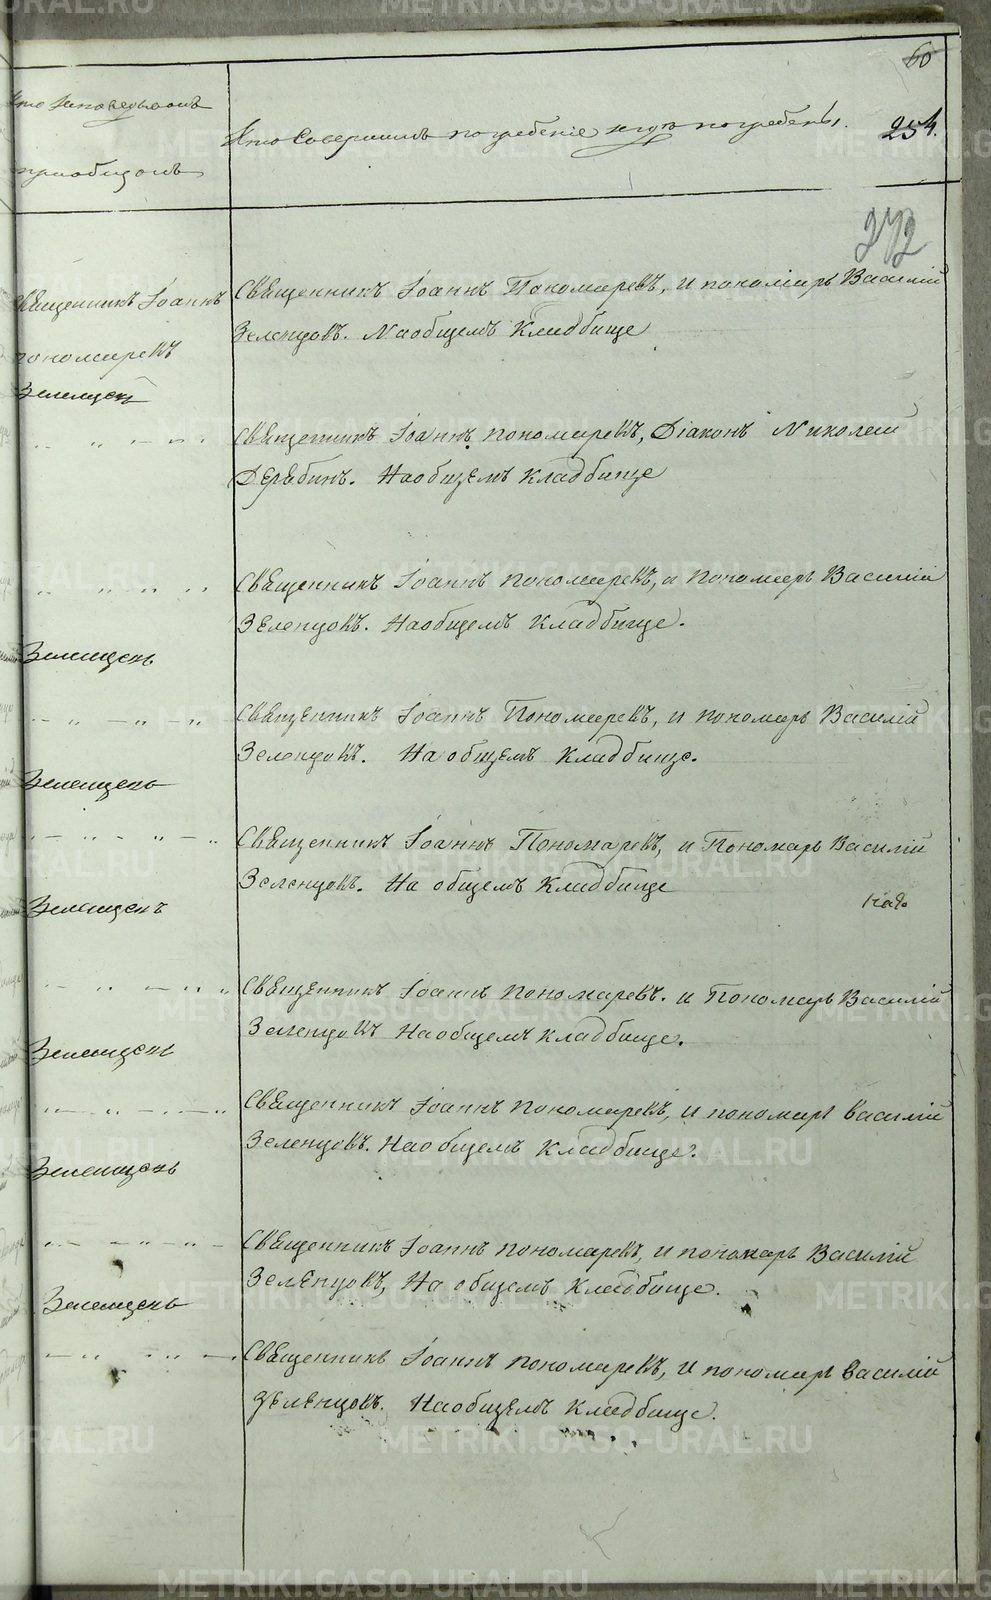 60
Кто исповедывалъ
приобщалъ
Кто Совершилъ погребеніе и гдѣ погребены.
254.
272
Священникъ Іоаннъ
пономаревъ
Священникъ Іоаннъ Пономаревъ, и пономарь Василій
Зеленцовъ. На общемъ Кладбище
Священникъ Іоаннъ пономаревъ, Діаконъ Николай
Дерябинъ. На общемъ Кладбище
Священникъ Іоаннъ пономаревъ, и Пономарь Василій
Зеленцовъ. На общемъ Кладбище.
Священникъ Іоаннъ Пономаревъ, и пономарь Василій
Зеленцовъ. На общемъ Кладбище.
Священникъ Іоаннъ Пономаревъ, и Пономарь Василій
Зеленцовъ. На общемъ Кладбище
Священникъ Іоаннъ Пономаревъ. и Пономарь Василій
Зеленцовъ На общемъ Кладбище.
Священникъ Іоаннъ пономаревъ, и пономарь Василій
Зеленцовъ. На общемъ Кладбище.
Священникъ Іоаннъ пономаревъ, и пономарь Василій
Зеленцовъ, На общемъ Кладбище.
Священникъ Іоаннъ пономаревъ, и пономарь Василій
Зеленцовъ. На общемъ Кладбище.
METRIKI.GASO-URAL.RU